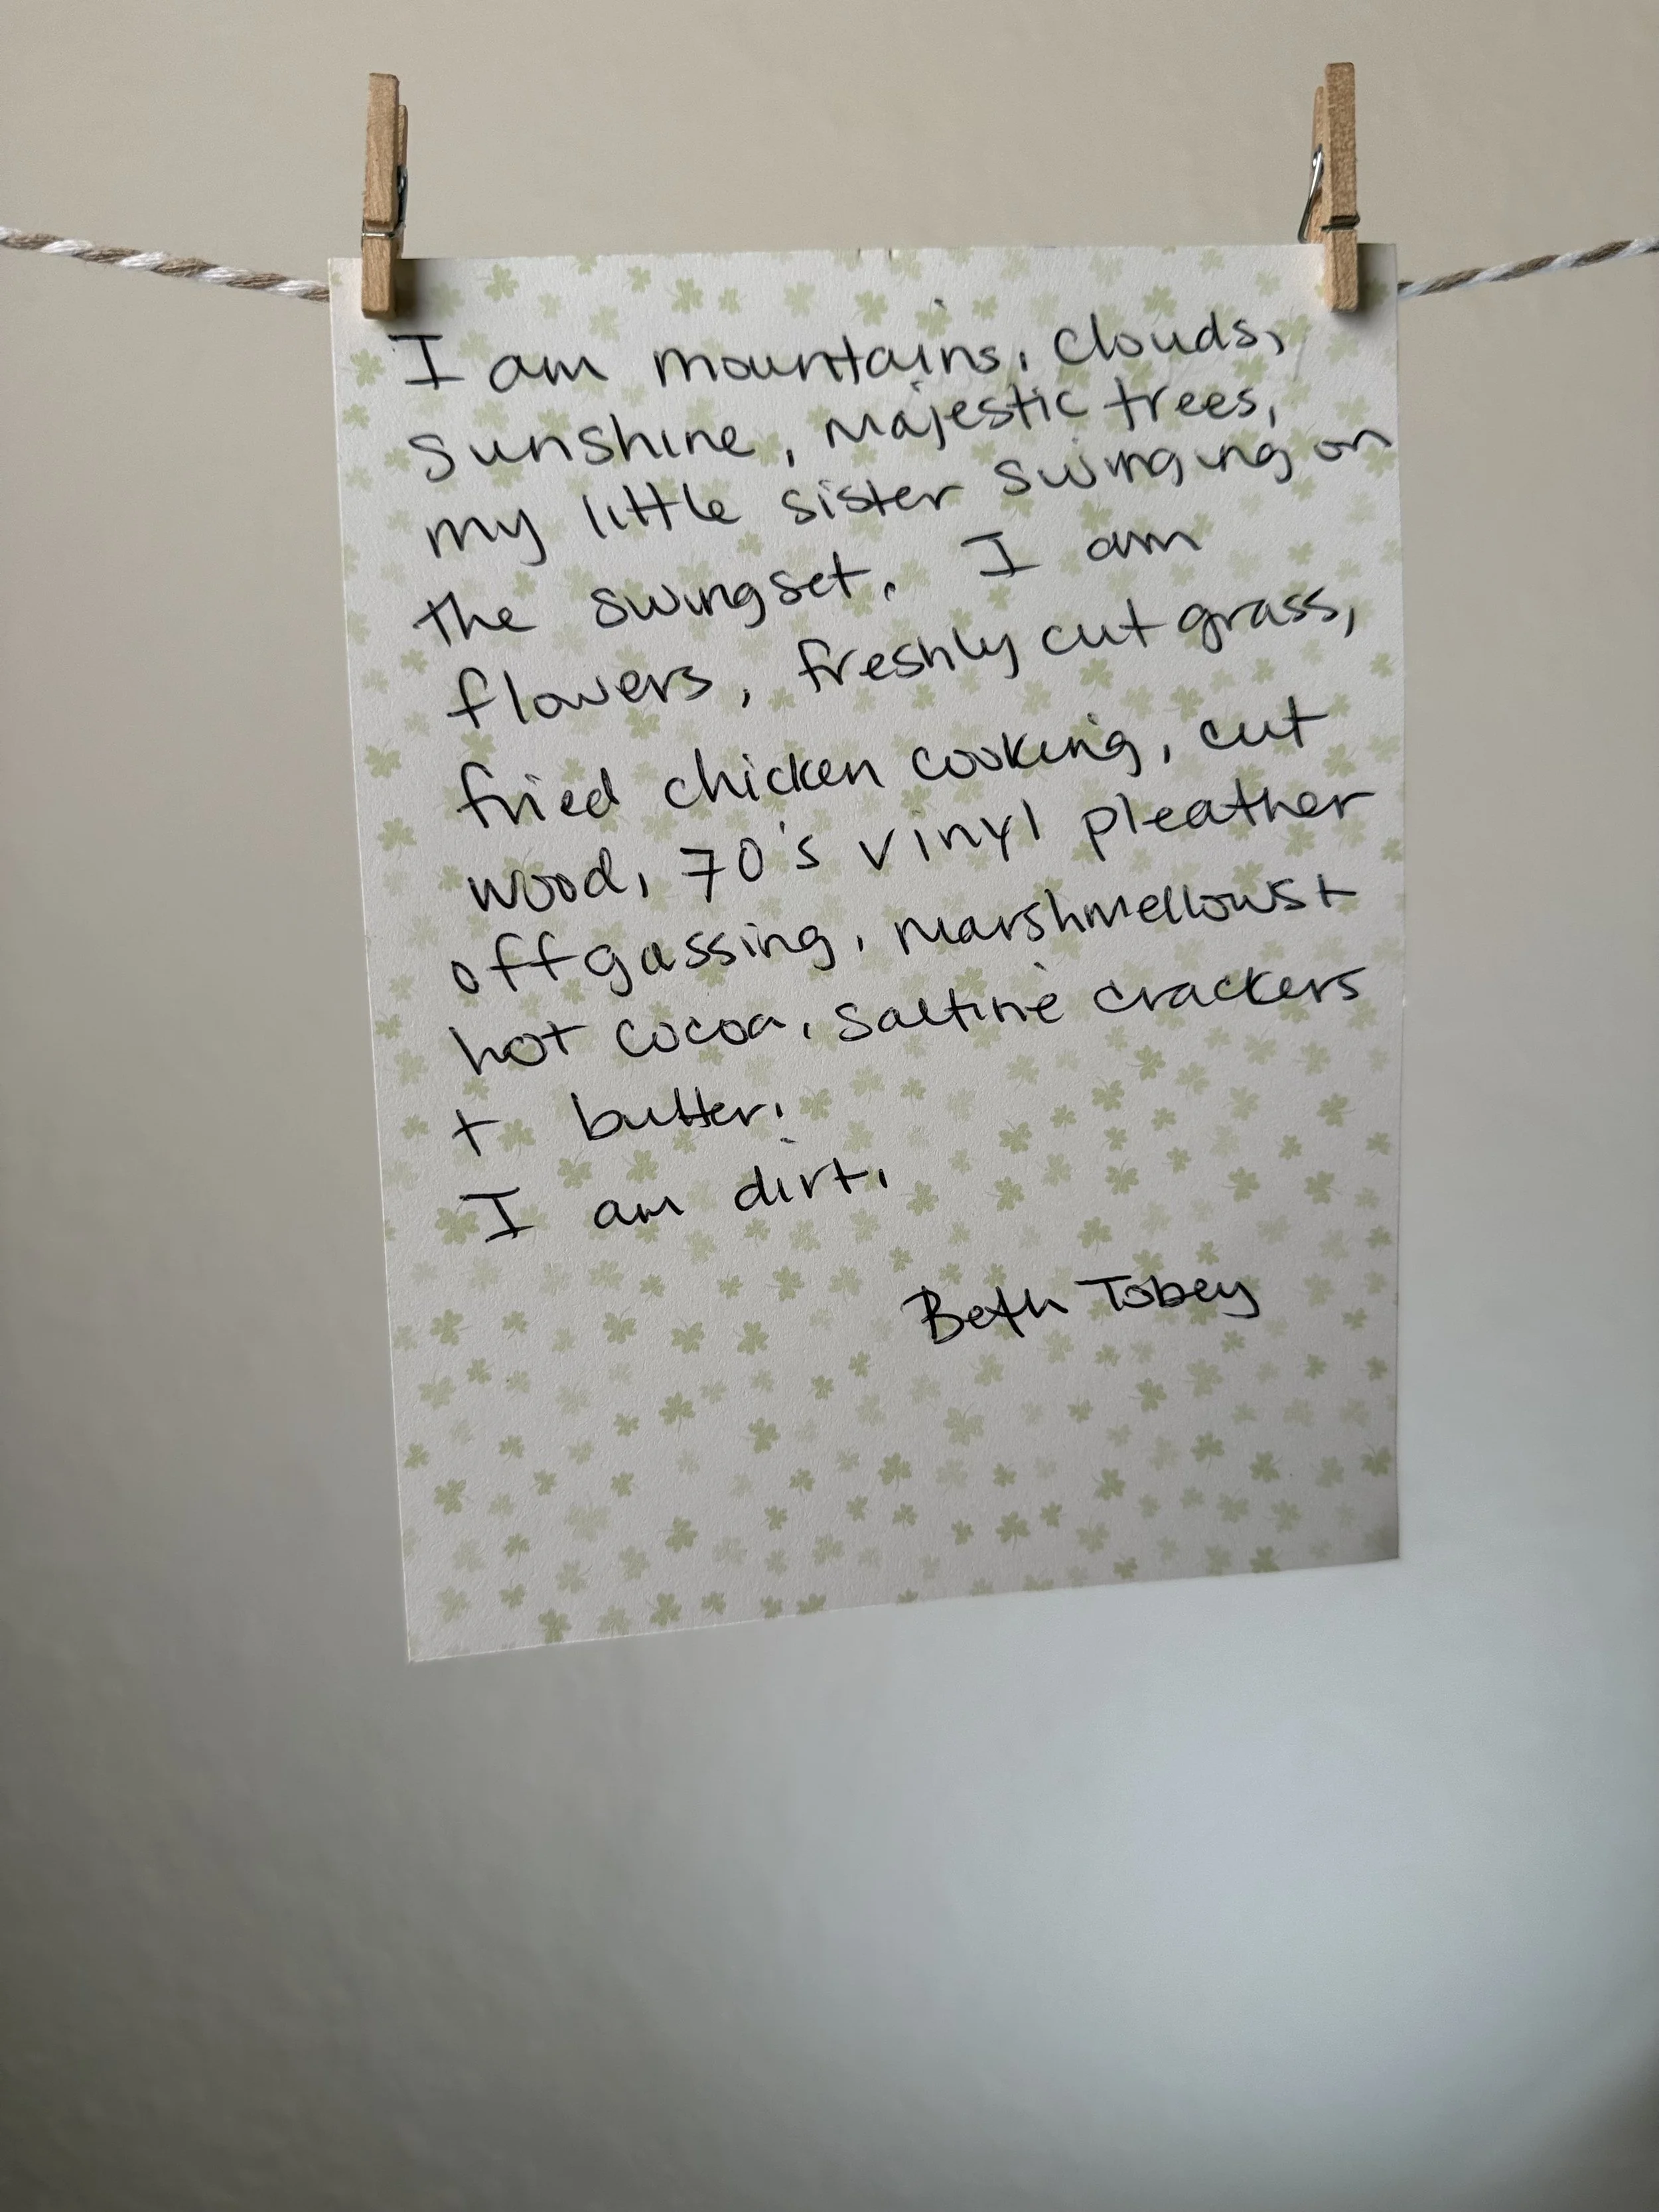 I am mountains, clouds,
sunshine, majestic trees,
my little sister swinging on
the swingset. I am
flowers, freshly cut grass,
fried chicken cooking, cut
wood, 70's vinyl pleather
offgassing, marshmellows +
hot cocoa, saltine crackers
+ butter.
I am dirt.
Beth Tobey